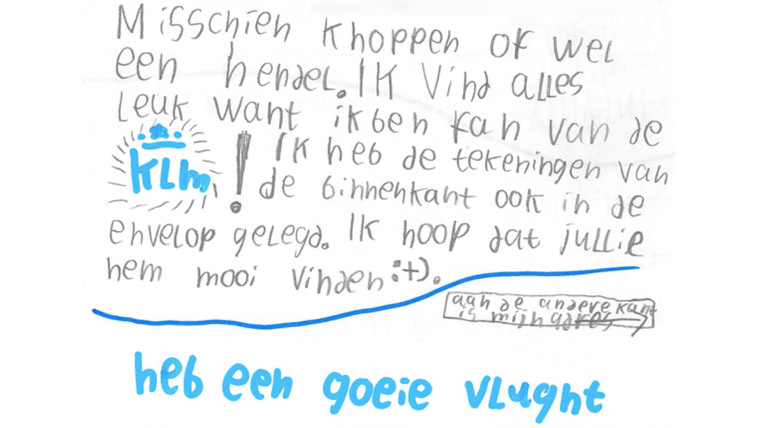 Misschien khoppen of wel
een hendel. Ik vind alles
leuk want ik ben fan van de
KLM! Ik heb de tekeningen van
de binnenkant ook in de
envelop gelegd. Ik hoop dat jullie
hem mooi vinden :+).
aan de andere kant
is mijn adres
heb een goeie vlught